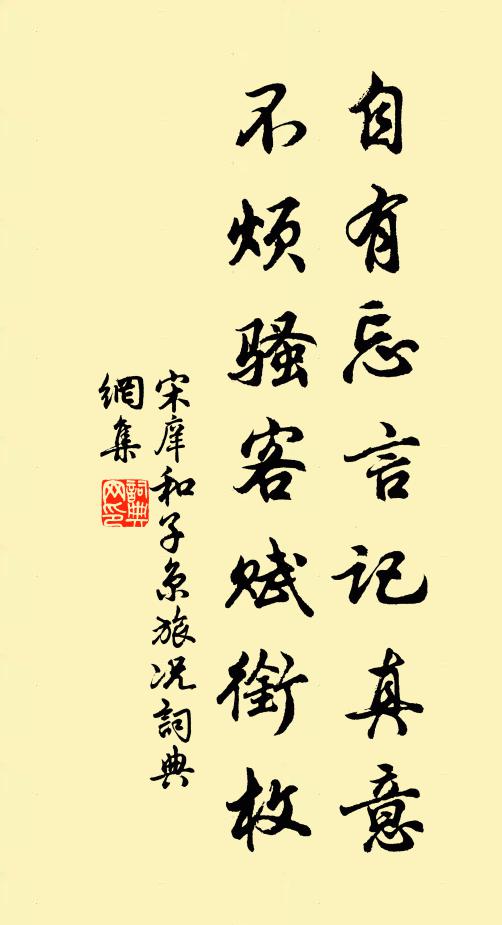 自有忘言记真意
不烦骚客赋衔枚
宋庠和子京旅况词典
网集
词典网印